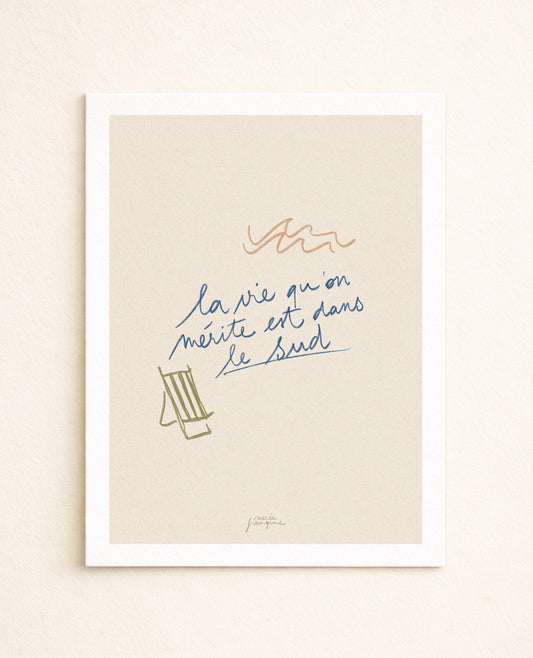 la vie qu'on
mérite est dans
le Sud